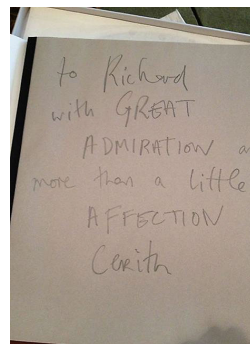 to Richard
with GREAT
ADMIRATION a
more than a little
AFFECTION
Cerith